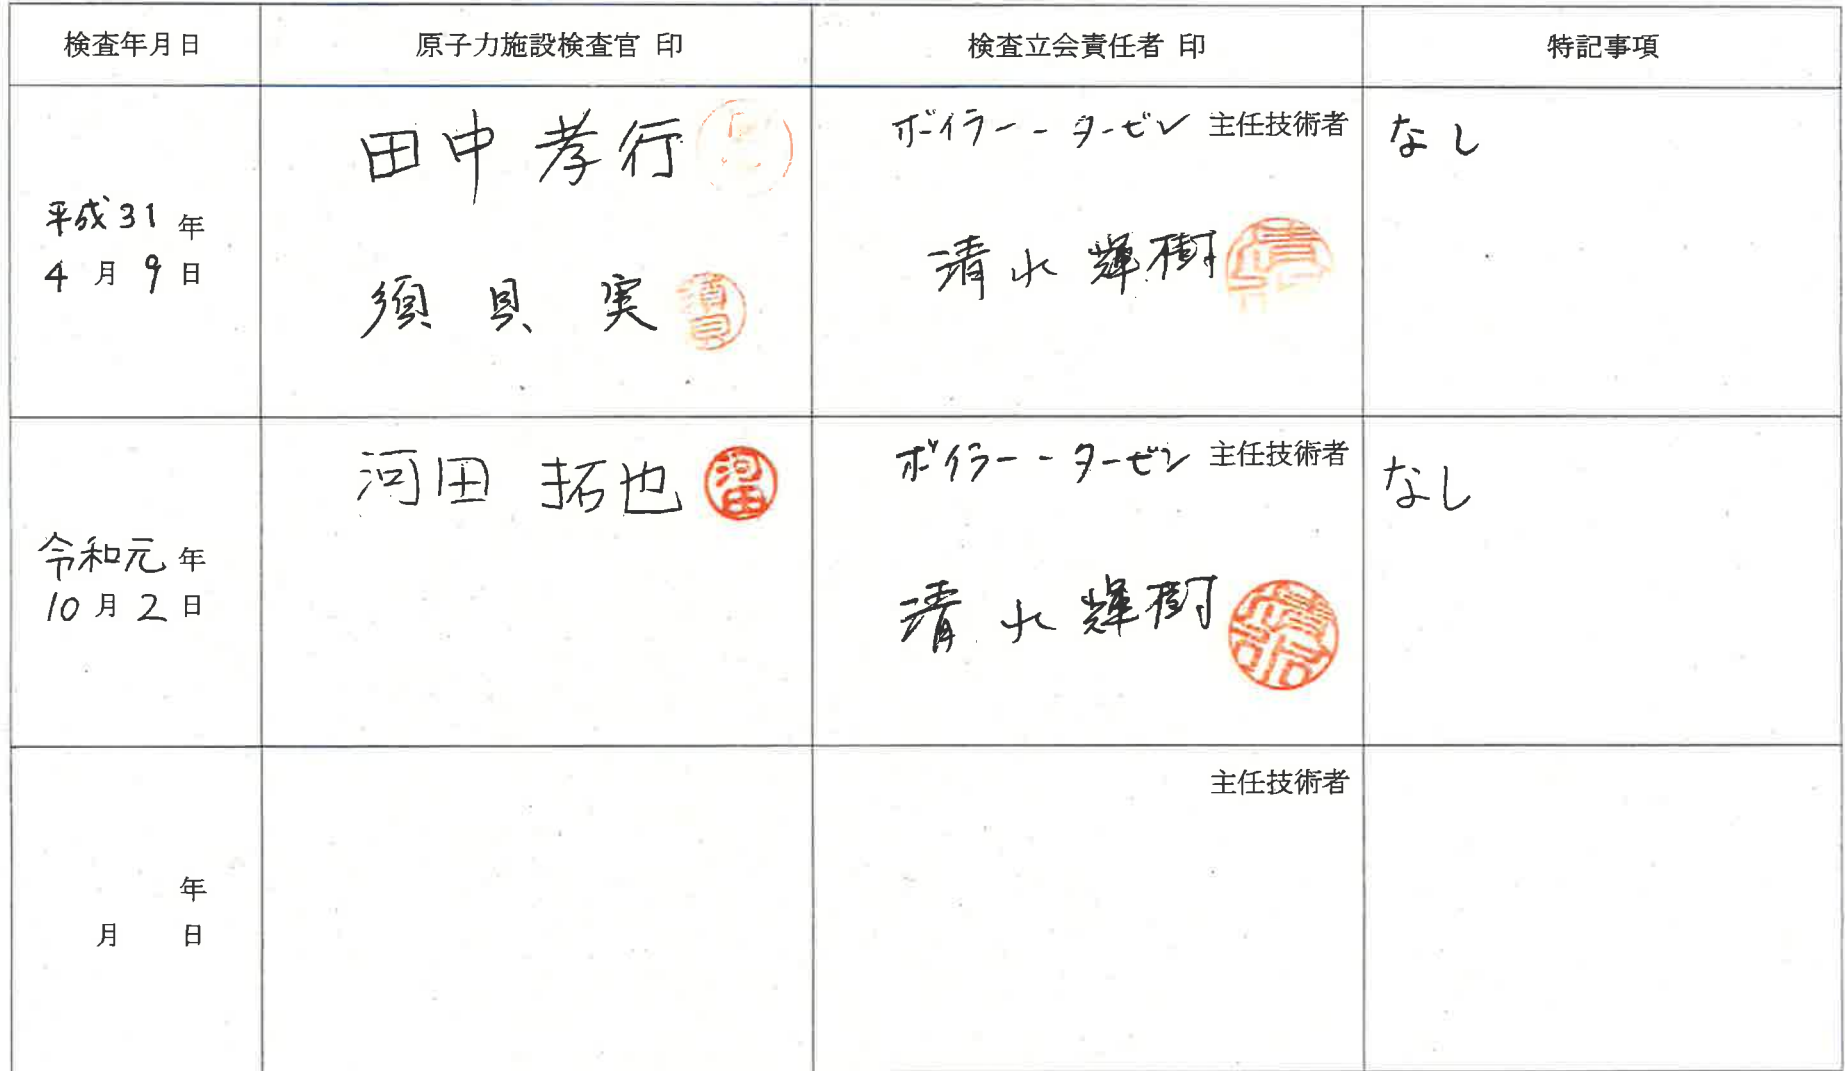 検査年月日 原子力施設検査官 印 検査立会責任者 印 特記事項
平成31年
4月9日
田中 孝行
須貝 実 須貝
ボイラー・タービン 主任技術者
清水 輝樹
なし
令和元年
10月2日
河田 拓也 河田
ボイラー・タービン 主任技術者
清水 輝樹
なし
年
月 日
主任技術者